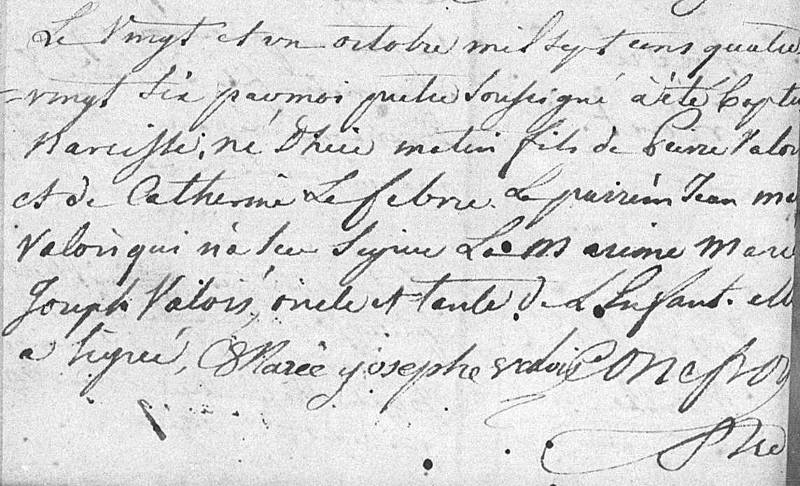 Le Vingt et un octobre mil sept cens quatre
=vingt Six par moi pretre Soussigné à été Baptis
Narcisse, né D'hier matin fils de Pierre Valoi
et de Catherine Lefebvre. Le parrein Jean
Valois qui n'a sçu Signer La Mareine Marie
Joseph Valois, oncle et tante. de L'Enfant. elle
a Signée, Marie josephe valois Concfroy
Ptre